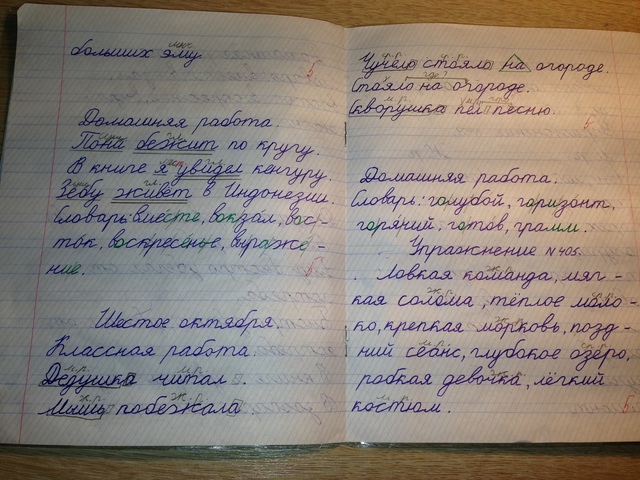 больших эму.
5
Домашняя работа.
Пона бежит по кругу.
В книге я увидел кенгуру.
Зебу живёт в Индонезии.
Словарь: вместе, вокзал, вос-
ток, воскресенье, выраже-
ние.
5
Шестое октября.
Классная работа.
Дедушка читал.
Мышь побежала
Чучело стояло на огороде.
где?
Стояло на огороде.
Скворушка пел песню.
5
Домашняя работа.
Словарь: голубой, горизонт,
горячий, готов, грамм.
Упражнение №405.
Ловкая команда, мяг-
кая солома, тёплое моло-
ко, крепкая морковь, позд-
ний сеанс, глубокое озеро,
робкая девочка, лёгкий
костюм.
5